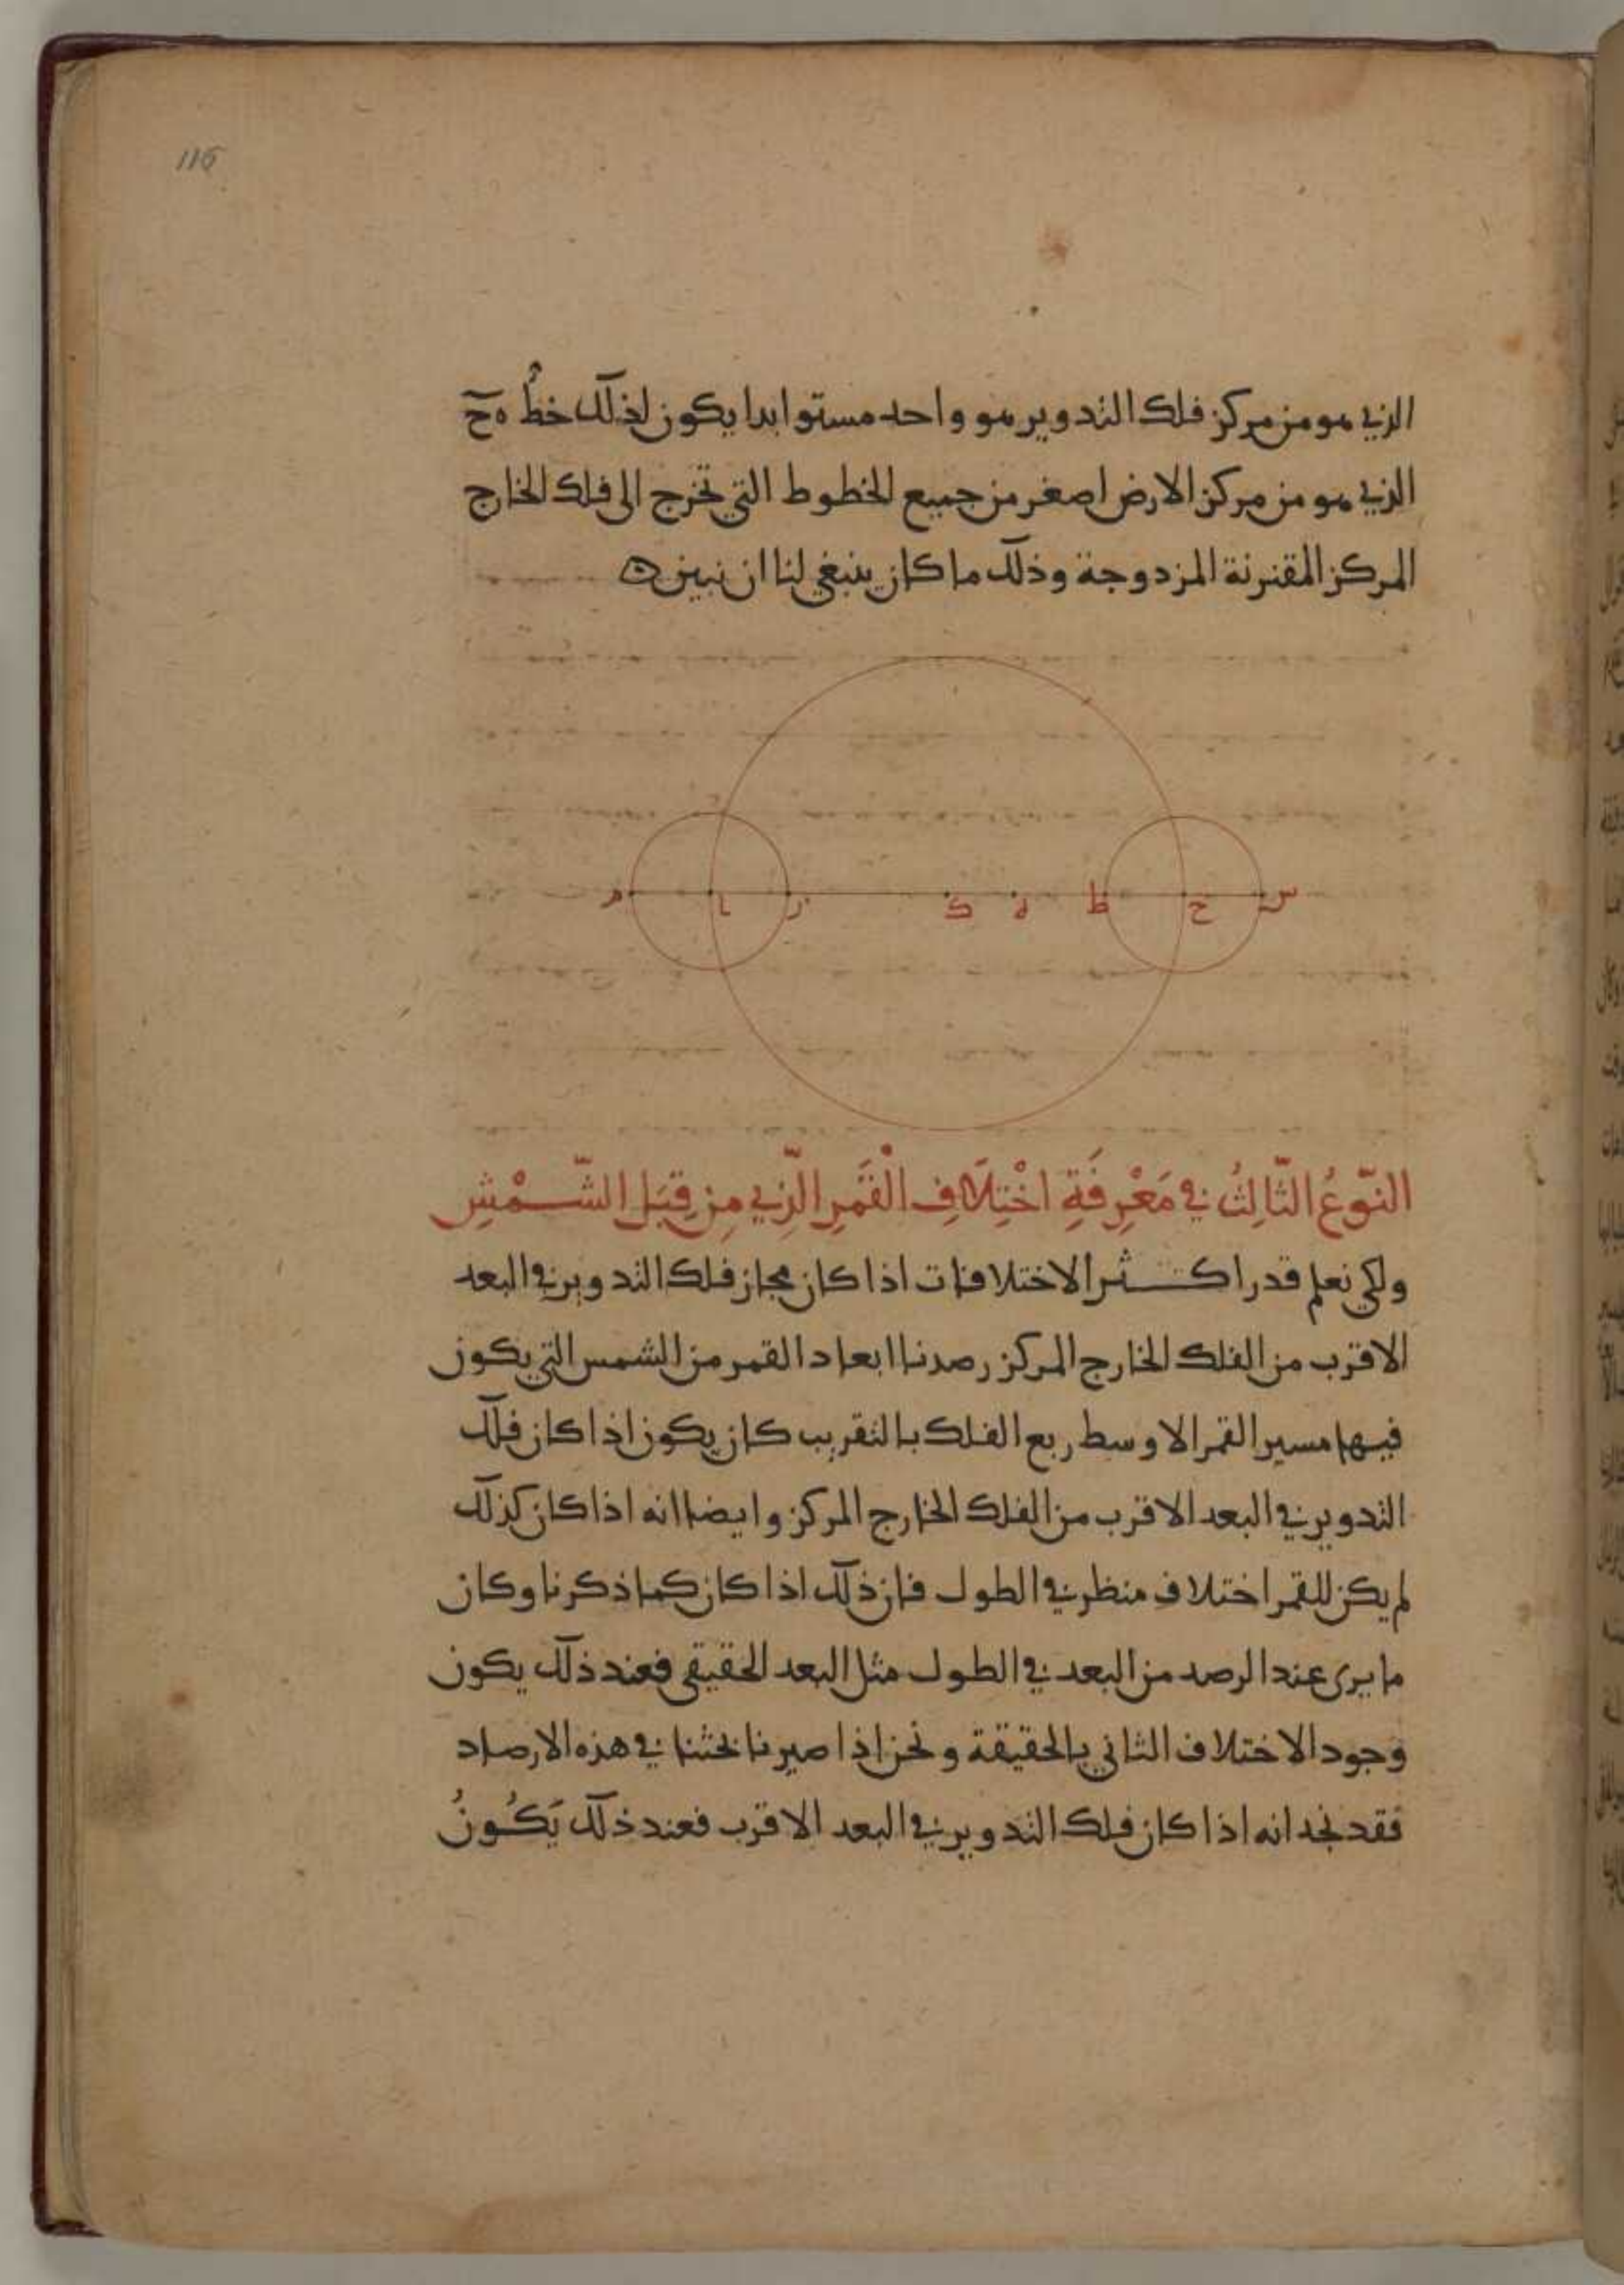 116
الذي هو من مركز فلك التدوير هو واحد مستو ابدا يكون لذلك خط ه ح
الذي هو من مركز الارض اصغر من جميع الخطوط التي تخرج الى فلك الخارج
المركز المقترنة المزدوجة وذلك ما كان ينبغي لنا ان نبين ه
م ل ر ك ه ط ح س
النّوعُ الثّالِثُ في مَعْرِفَةِ اخْتِلَافِ الْقَمَرِ الّذِي مِن قِبَلِ الشّمْسِ
ولكي نعلم قدر اكثر الاختلافات اذا كان مجاز فلك التدوير في البعد
الاقرب من الفلك الخارج المركز رصدنا ابعاد القمر من الشمس التي يكون
فيها مسير القمر الاوسط ربع الفلك بالتقريب كان يكون اذا كان فلك
التدوير في البعد الاقرب من الفلك الخارج المركز وايضا انه اذا كان كذلك
لم يكن للقمر اختلاف منظر في الطول فان ذلك اذا كان كما ذكرنا وكان
ما يرى عند الرصد من البعد في الطول مثل البعد الحقيقي فعند ذلك يكون
وجود الاختلاف الثاني بالحقيقة ونحن اذا صيرنا بحثنا في هذه الارصاد
فقد نجد انه اذا كان فلك التدوير في البعد الاقرب فعند ذلك يَكُونُ